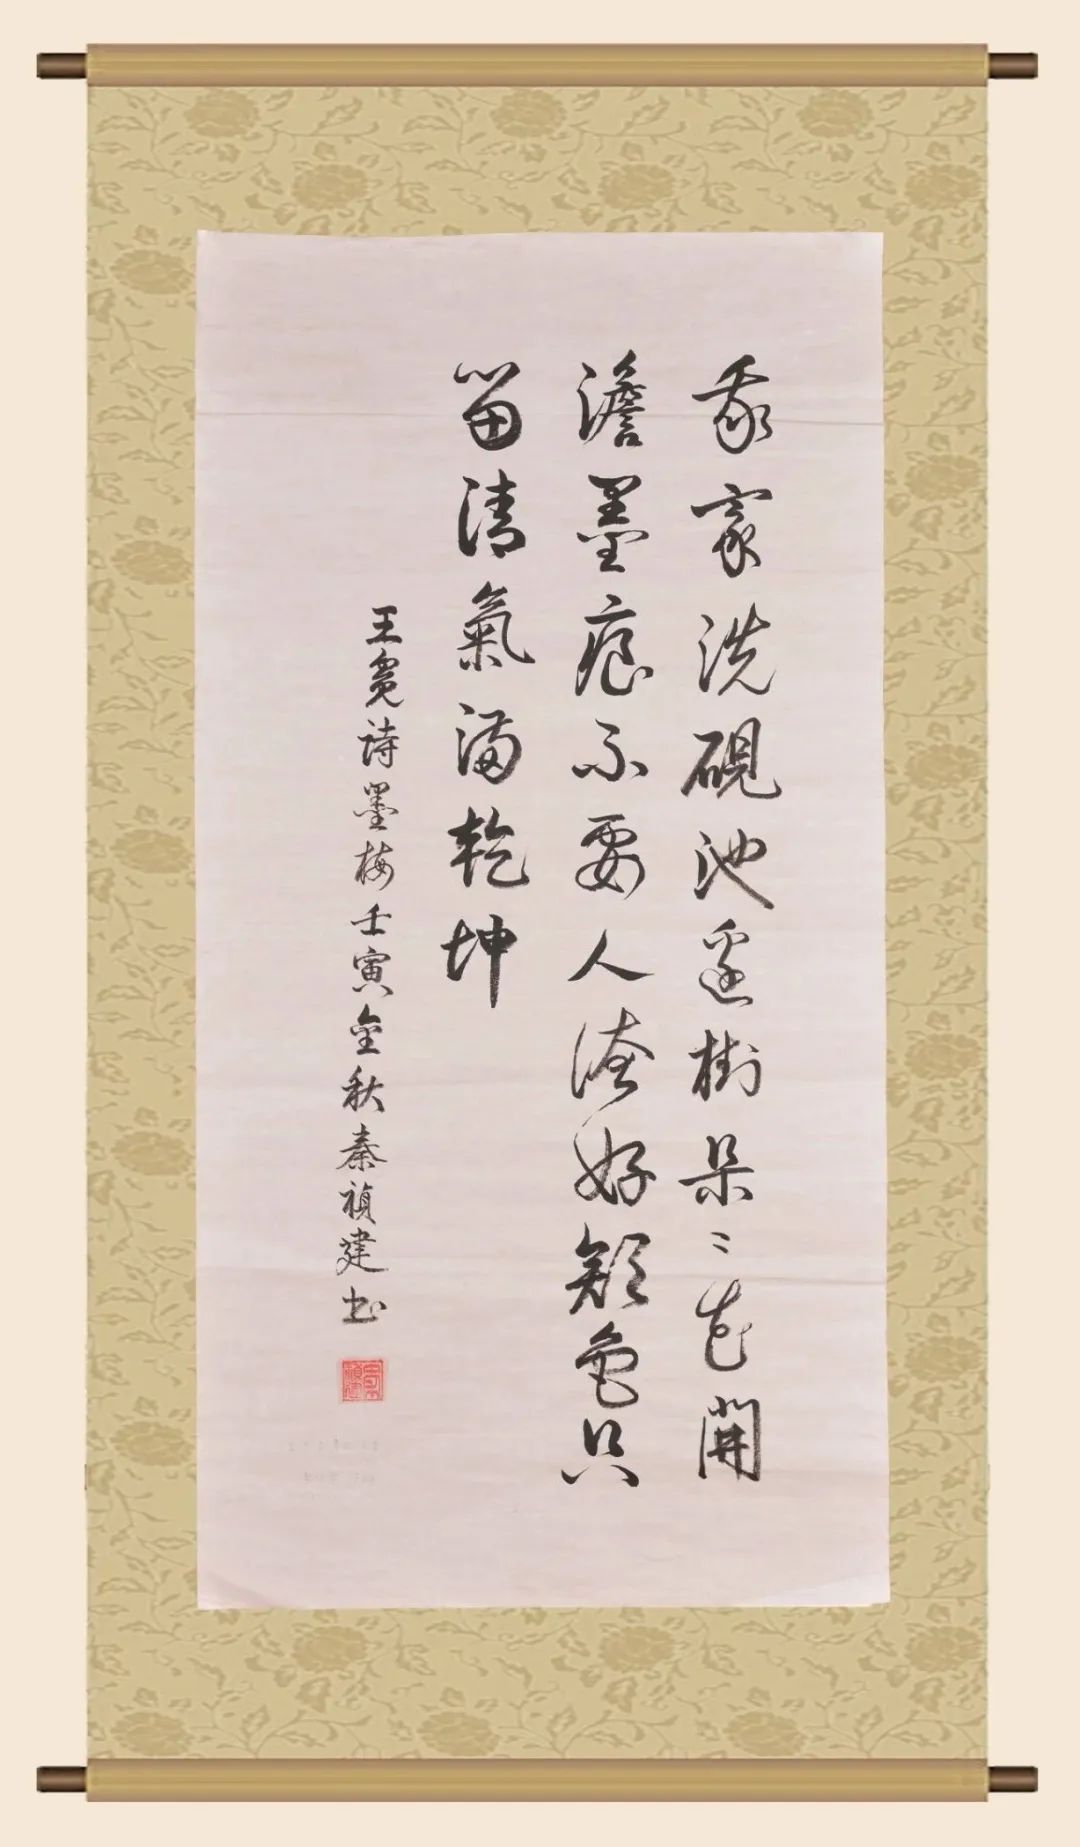 我家洗硯池邊樹朵〻花開
澹墨痕不要人誇好顏色只
留清氣滿乾坤
王冕詩墨梅壬寅金秋秦禎建書